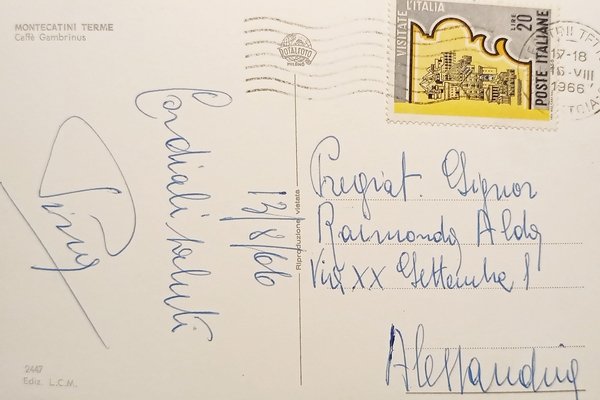 MONTECATINI TERME
Caffè Gambrinus
ROTALFOTO
MILANO
VISITATE L'ITALIA
LIRE 20
POSTE ITALIANE
17-18
16-VIII
1966
Cordiali saluti
13/8/66
Riproduzione vietata
Pregiat. Signor
Raimondo Aldo
Via XX Settembre 1
Alessandria
2447
Ediz. L.C.M.